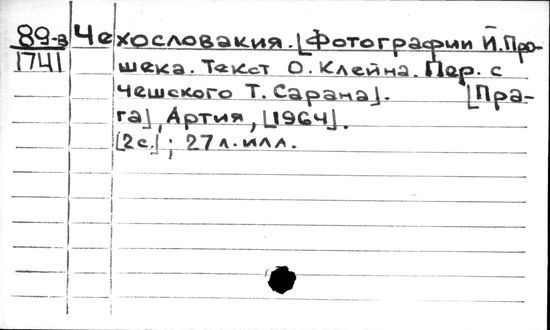 89-в Чехословакия. [Фотографии Й. Про-
1741 шека. Текст О. Клейна. Пер. с
чешского Т. Сарана]. [Пра-
га], Артия, [1964].
[2с.]; 27л. илл.